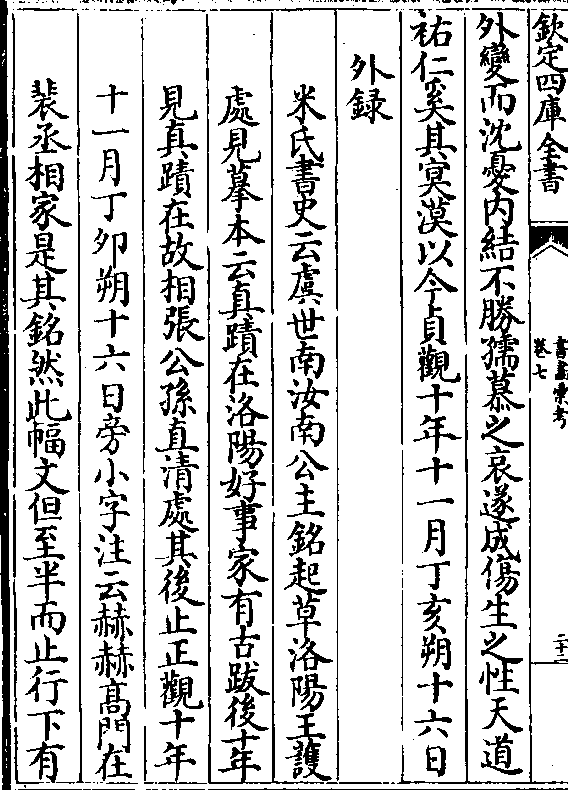 欽定四庫全書
書畫彙考
卷七
二十二
外變而沈憂内結不勝孺慕之哀遂成傷生之性天道
祐仁奚其冥漠以今貞觀十年十一月丁亥朔十六日
外録
米氏書史云虞世南汝南公主銘起草洛陽王護
處見摹本云真蹟在洛陽好事家有古跋後十年
見真蹟在故相張公孫直清處其後止正觀十年
十一月丁夘朔十六日旁小字注云赫赫髙門在
裴丞相家是其銘然此幅文但至半而止行下有